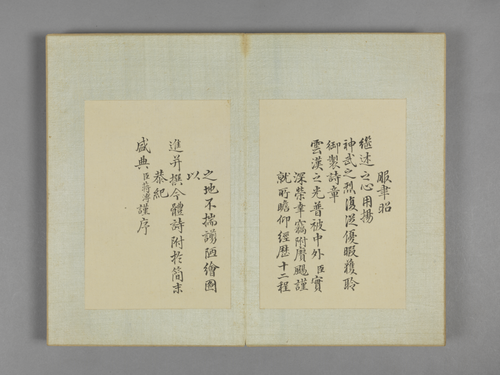 暇聿昭
繼述之心用揚
神武之烈復從優暇獲聆
御製詩章
雲漢之光普被中外臣實
深榮幸竊附賡颺謹
就所瞻仰經歷十二程
之地不揣譾陋繪圖
以
進并撰今體詩附於簡末
恭紀
盛典臣蔣溥謹序